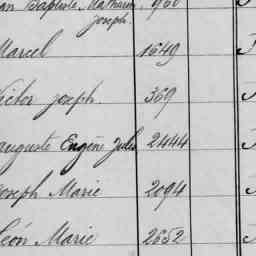 Baptiste Mathurin
Joseph.
Marcel 1649
Victor Joseph. 369
Auguste Eugène Jules 2444
Joseph Marie 2094
Léon Marie 2652